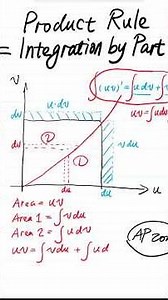 Product Rule
= Integration by Part
v
u·dv
(uv)' = ∫u dv +
uv = ∫u
dv
②
dv
v du
①
du
du
u
Area = uv
Area 1 = ∫v du
Area 2 = ∫u dv
uv = ∫v du + ∫u d